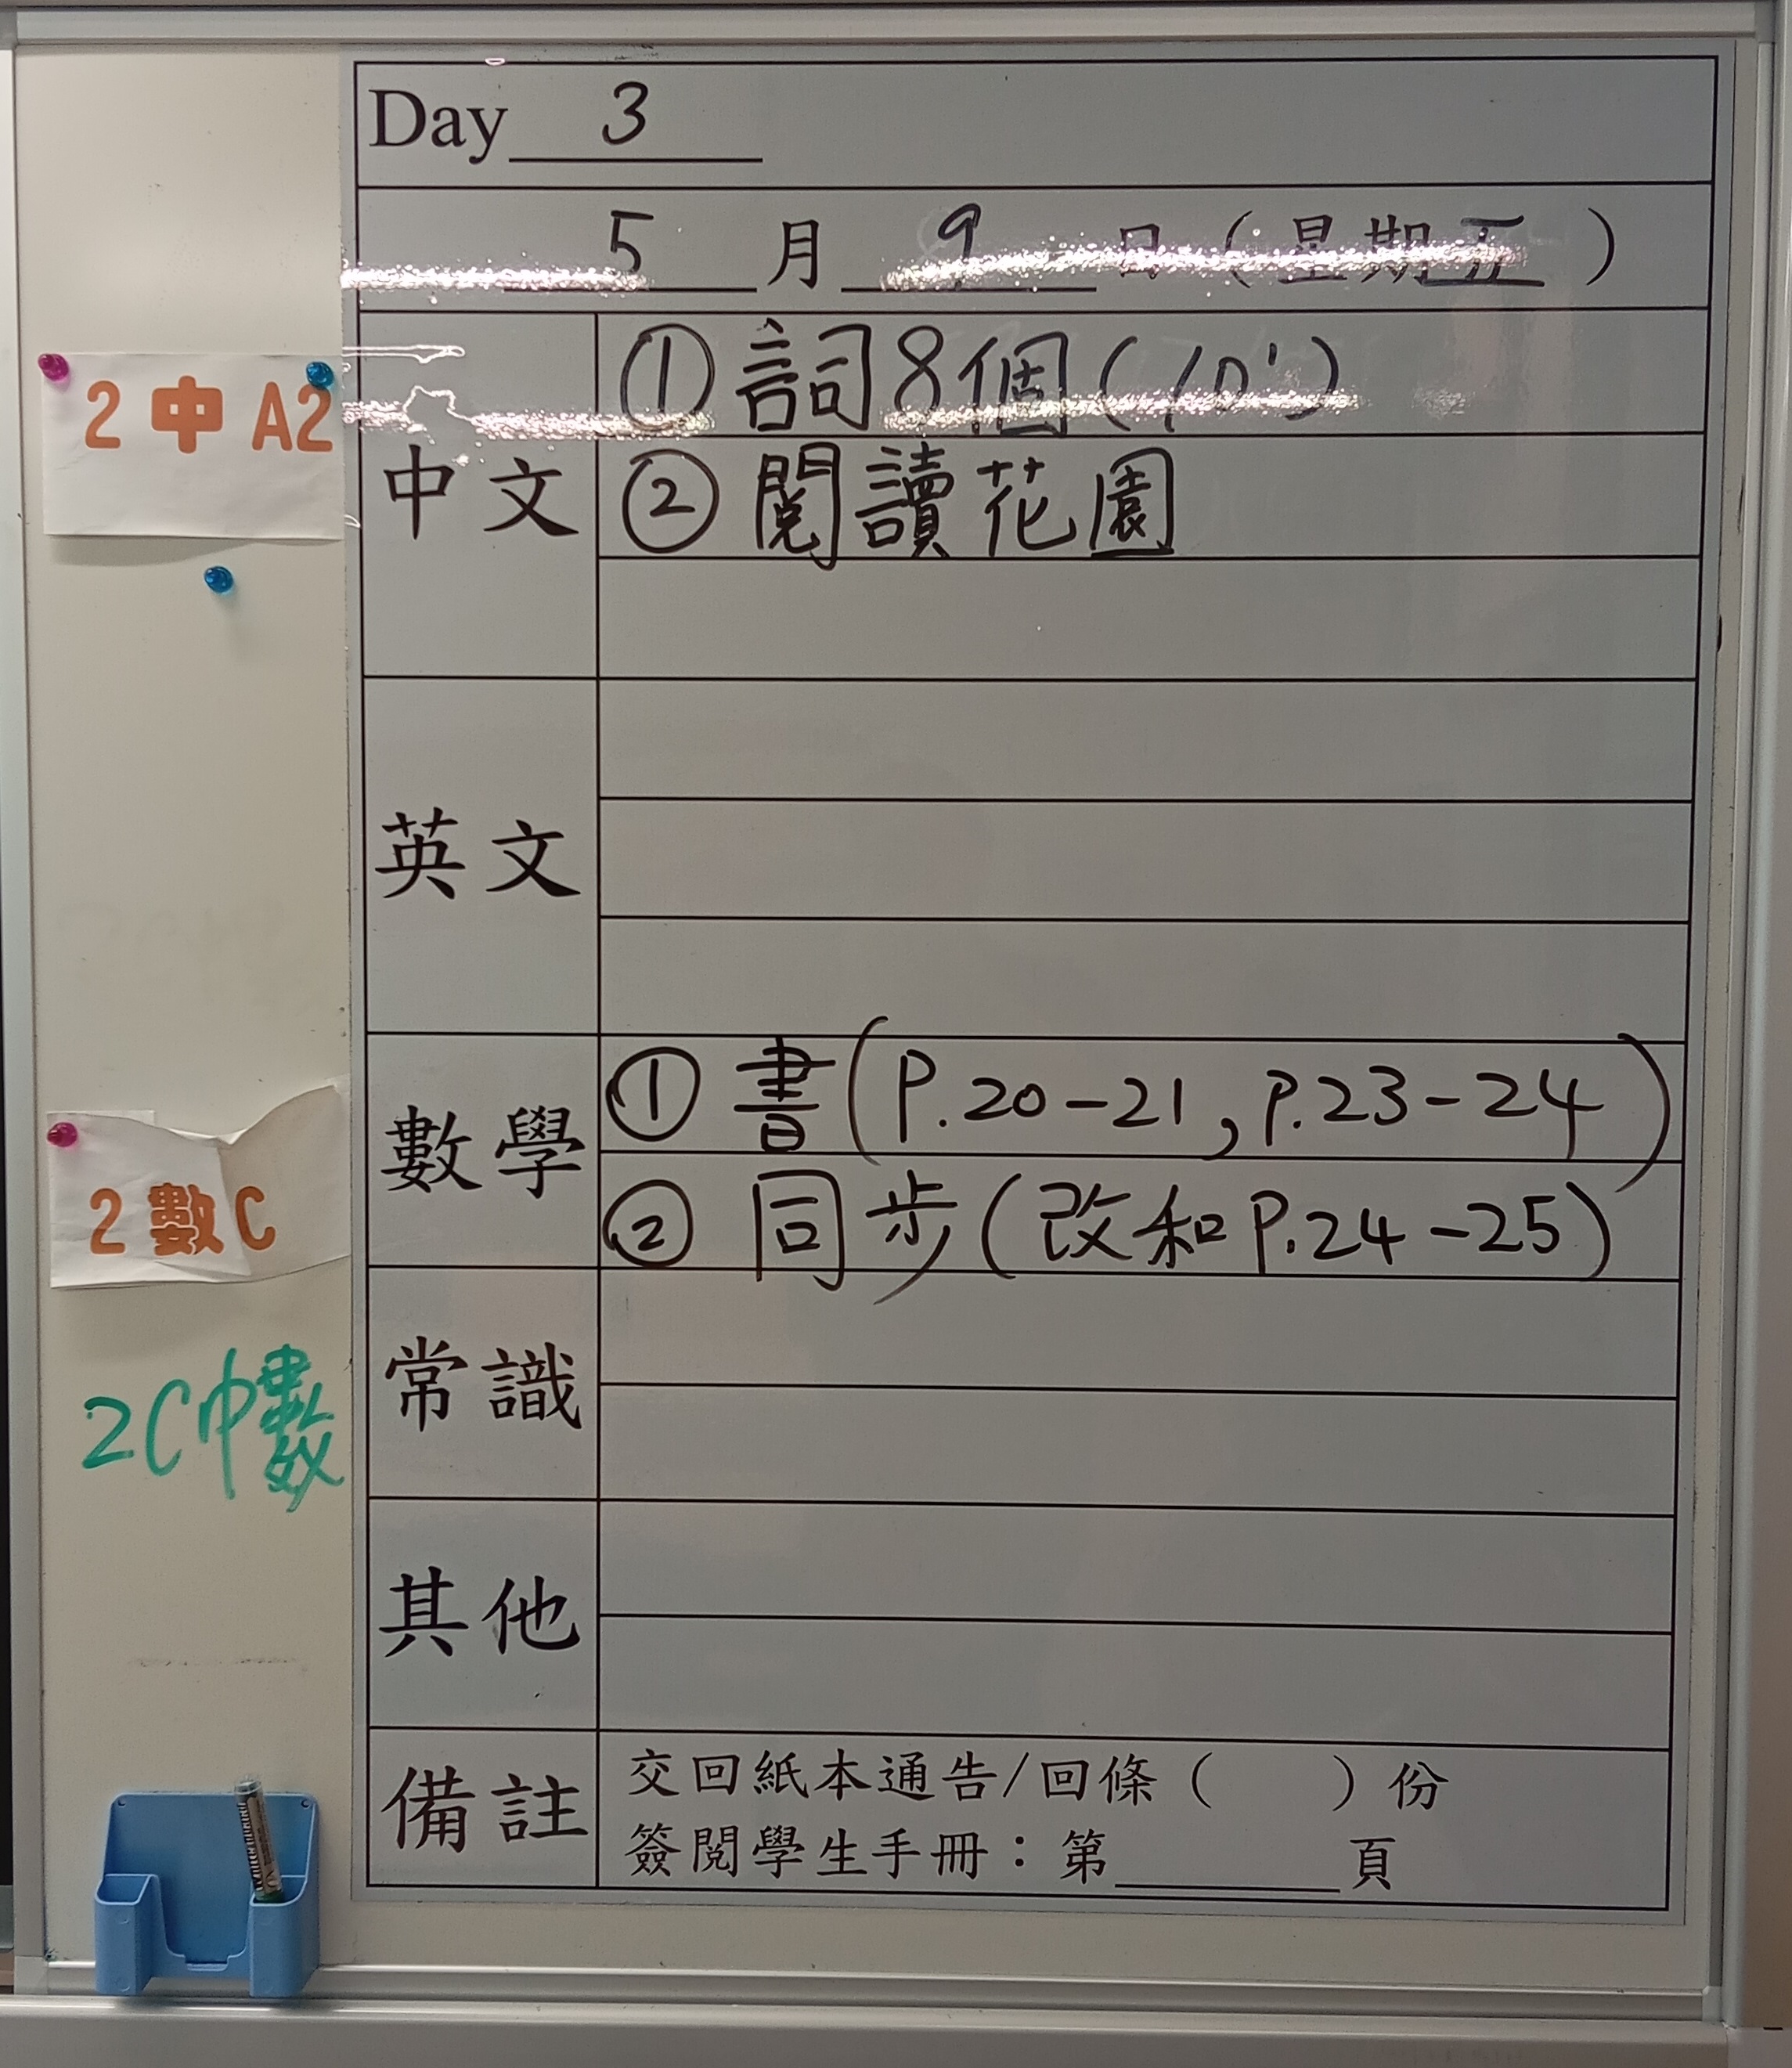 Day 3
5 月 9 日 ( 星期五 )
2 中 A2
中文
① 詞8個(10')
② 閱讀花園
英文
2 數 C
數學
① 書(P.20-21, P.23-24)
② 同步(改和P.24-25)
2C中數
常識
其他
備註
交回紙本通告/回條 ( ) 份
簽閱學生手冊：第______頁